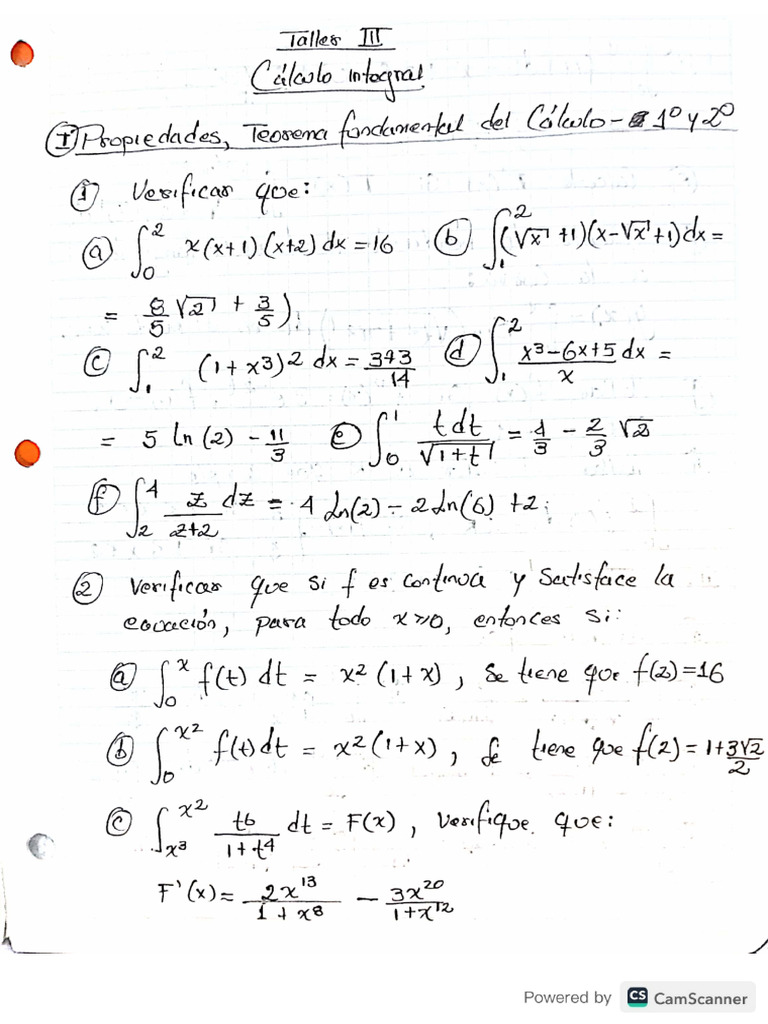 Taller III
Cálculo integral
(I) Propiedades, Teorema fundamental del Cálculo - 1º y 2º
① Verificar que:
ⓐ ∫₀² x(x+1)(x+2) dx = 16 ⓑ ∫₁² (√x +1)(x-√x+1) dx =
= 8/5 √2 + 3/5).
ⓒ ∫₁² (1+x³)² dx = 343/14 ⓓ ∫₁² (x³-6x+5)/x dx =
= 5 ln(2) - 11/3 ⓔ ∫₀¹ t dt/√(1+t) = 4/3 - 2/3 √2
ⓕ ∫₂⁴ z/(z+2) dz = 4 Ln(2) - 2 Ln(6) + 2;
② Verificar que si f es continua y satisface la
ecuación, para todo x≥0, entonces si:
ⓐ ∫₀ˣ f(t) dt = x²(1+x), se tiene que f(2)=16
ⓑ ∫₀^x² f(t) dt = x²(1+x), se tiene que f(2) = (1+3√2)/2
ⓒ ∫_x³^x² t⁶/(1+t⁴) dt = F(x), verifique que:
F'(x) = 2x¹³/(1+x⁸) - 3x²⁰/(1+x¹²)
Powered by CS CamScanner